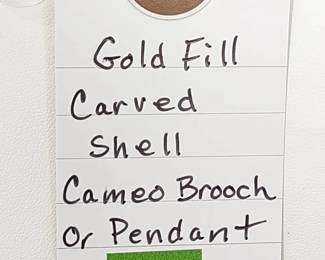 Gold Fill
Carved
Shell
Cameo Brooch
or Pendant